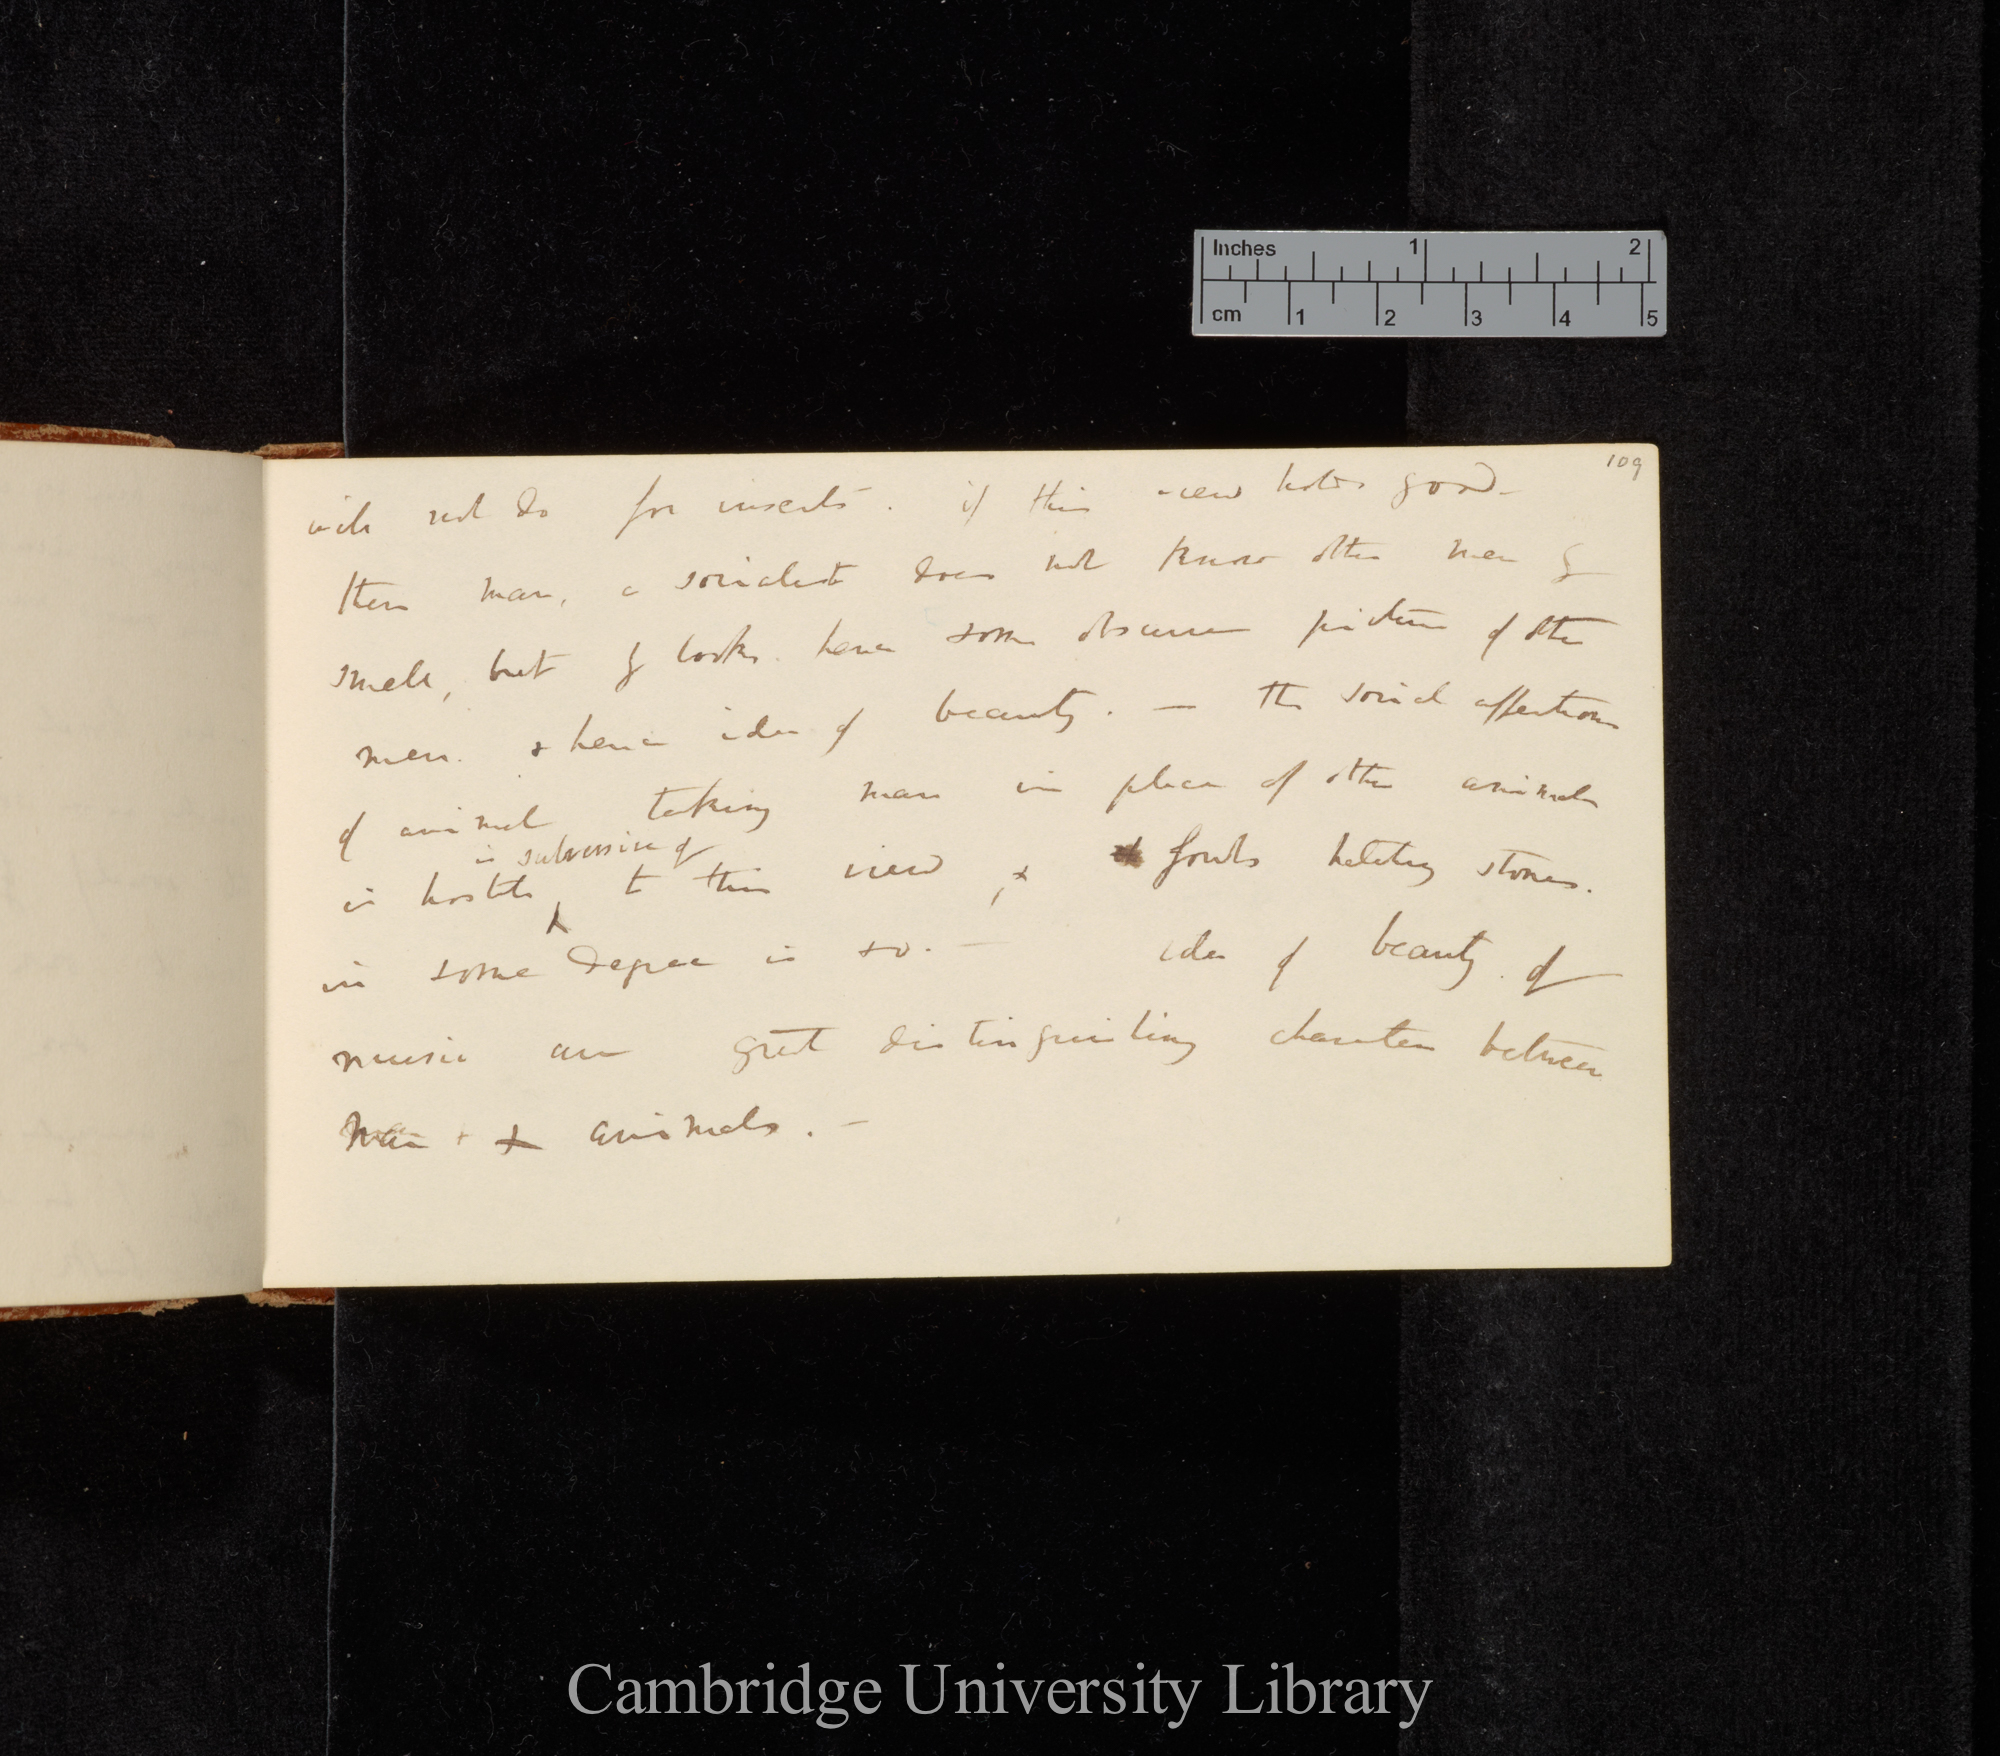 Inches 1 2
cm 1 2 3 4 5
109
will not do for insects. if this view holds good —
then man, a socialist does not know other men by
smell, but by looks. hence some obscure picture of other
men. & hence idea of beauty. — the social affections
of animal taking man in place of other animals
is subversive of
is hostile to this view, & fowls hatching stones.
in some degree is so. — idea of beauty. of
music are great distinguishing character between
man + & animals. —
Cambridge University Library